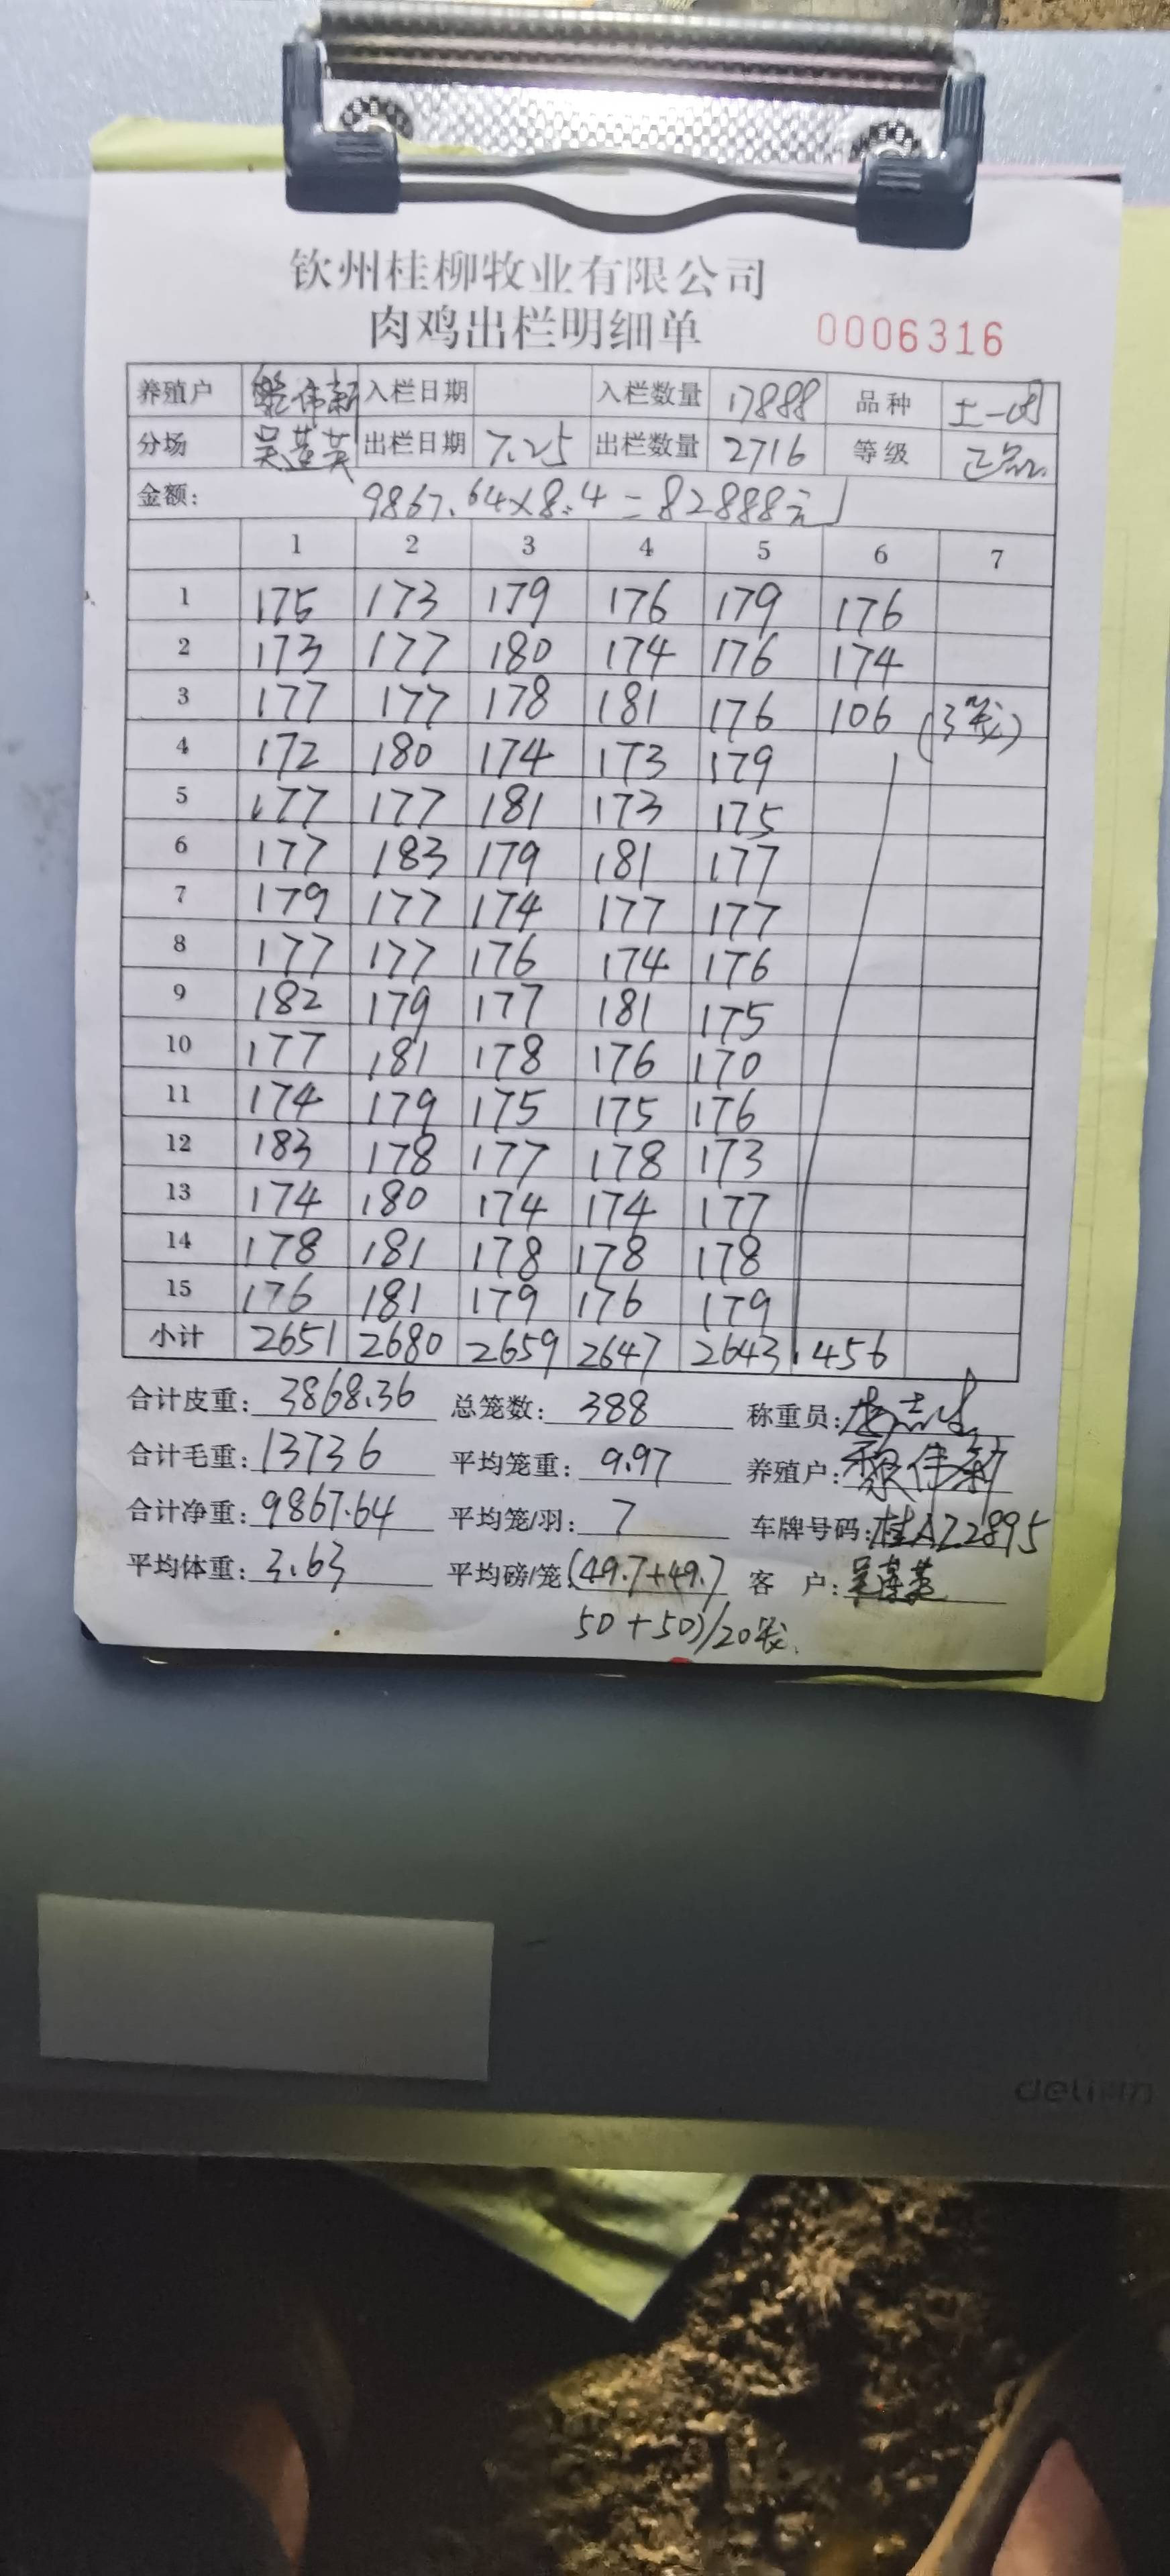 钦州桂柳牧业有限公司
肉鸡出栏明细单 0006316
养殖户 伟新 入栏日期 入栏数量 17888 品种 土一
分场 吴 英 出栏日期 7.25 出栏数量 2716 等级 正品
金额: 9867.64×8.4=82888元
1 2 3 4 5 6 7
1 175 173 179 176 179 176
2 173 177 180 174 176 174
3 177 177 178 181 176 106 (3笼)
4 172 180 174 173 179
5 177 177 181 173 175
6 177 183 179 181 177
7 179 177 174 177 177
8 177 177 176 174 176
9 182 179 177 181 175
10 177 181 178 176 170
11 174 179 175 175 176
12 183 178 177 178 173
13 174 180 174 174 177
14 178 181 178 178 178
15 176 181 179 176 179
小计 2651 2680 2659 2647 2643 456
合计皮重: 3868.36 总笼数: 388 称重员:
合计毛重: 13736 平均笼重: 9.97 养殖户: 黎伟新
合计净重: 9867.64 平均笼/羽: 7 车牌号码: 桂AZ2895
平均体重: 3.63 平均磅/笼: (49.7+49.7 客 户: 吴 英
50+50)/20笼.
deli